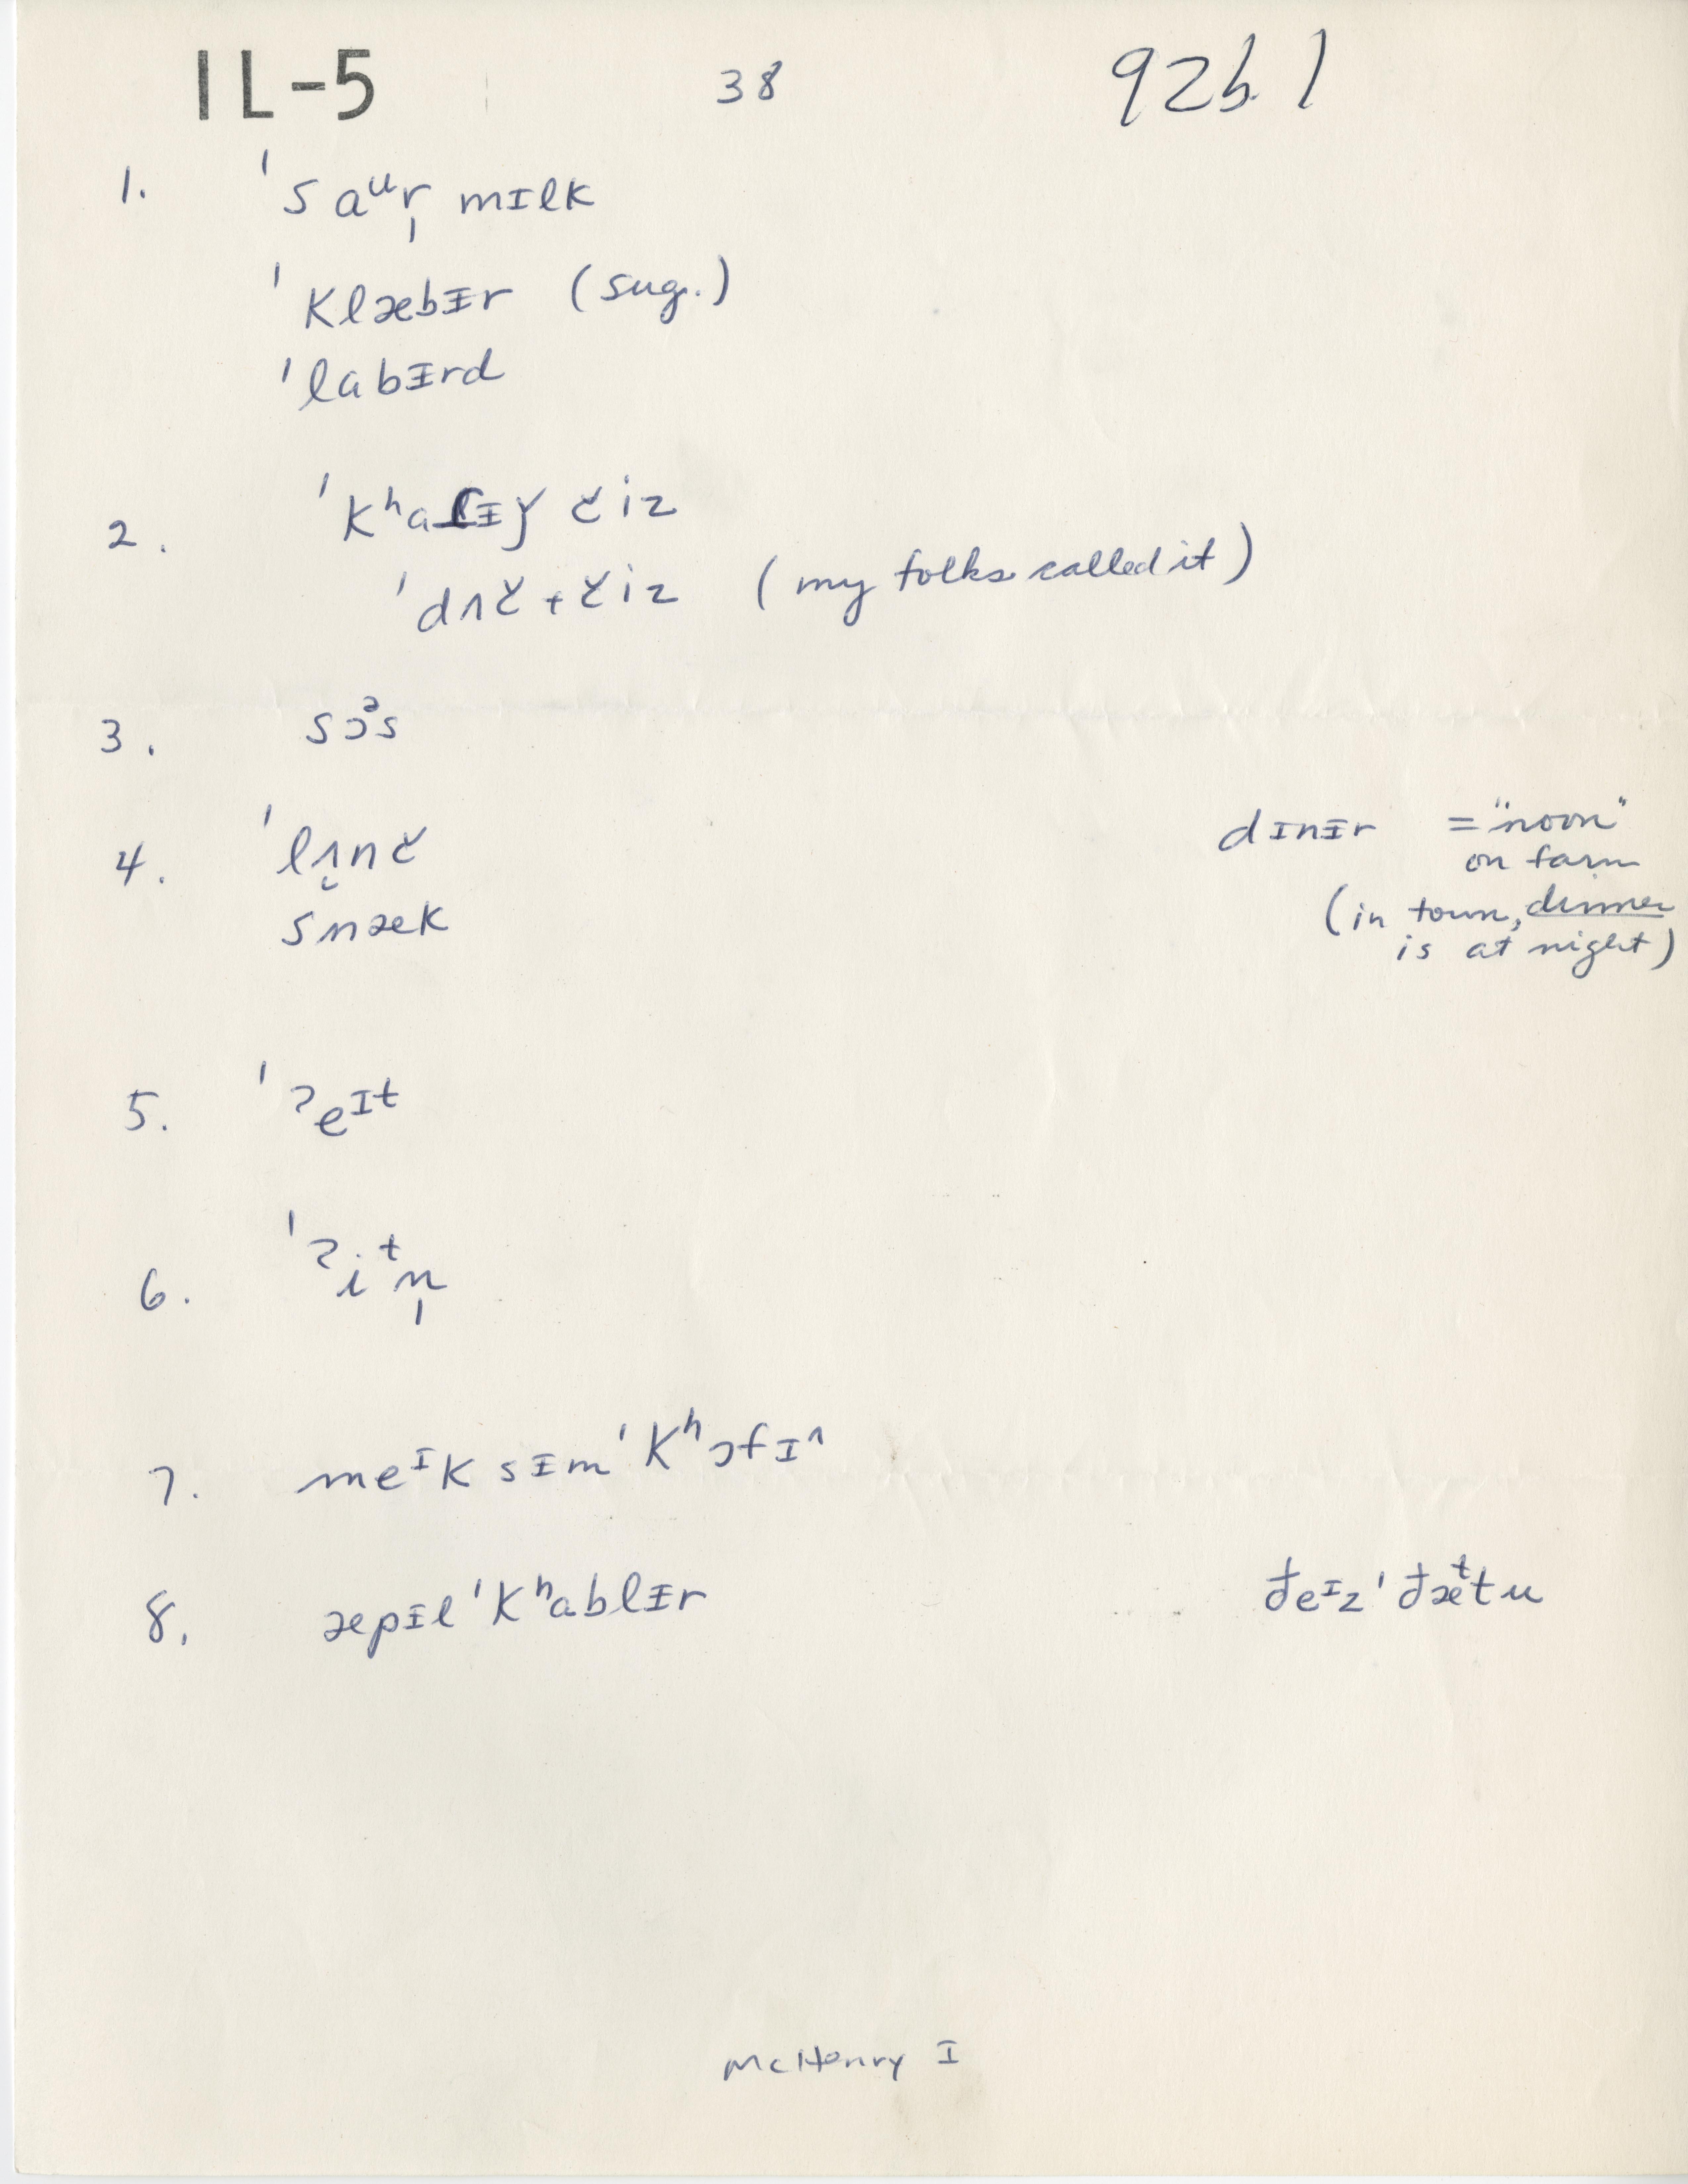 IL-5 38 926.1
1. ˈsaᵘr̩ mɪlk
ˈklæbᵻr (sug.)
ˈlabᵻrd
2. ˈkʰaᵻǰ čiz
ˈdʌč+čiz (my folks called it)
3. sɔᵊs
4. ˈlʌ̨nč dɪnᵻr = "noon"
snæk on farm
(in town, dinner
is at night)
5. ˈʔeᴵt
6. ˈʔiᵗn̩
7. meᴵk sᵻm ˈkʰɔfɪ^
8. æpᵻl ˈkʰablᵻr đeᴵz ˈđæᵗtu
McHenry I